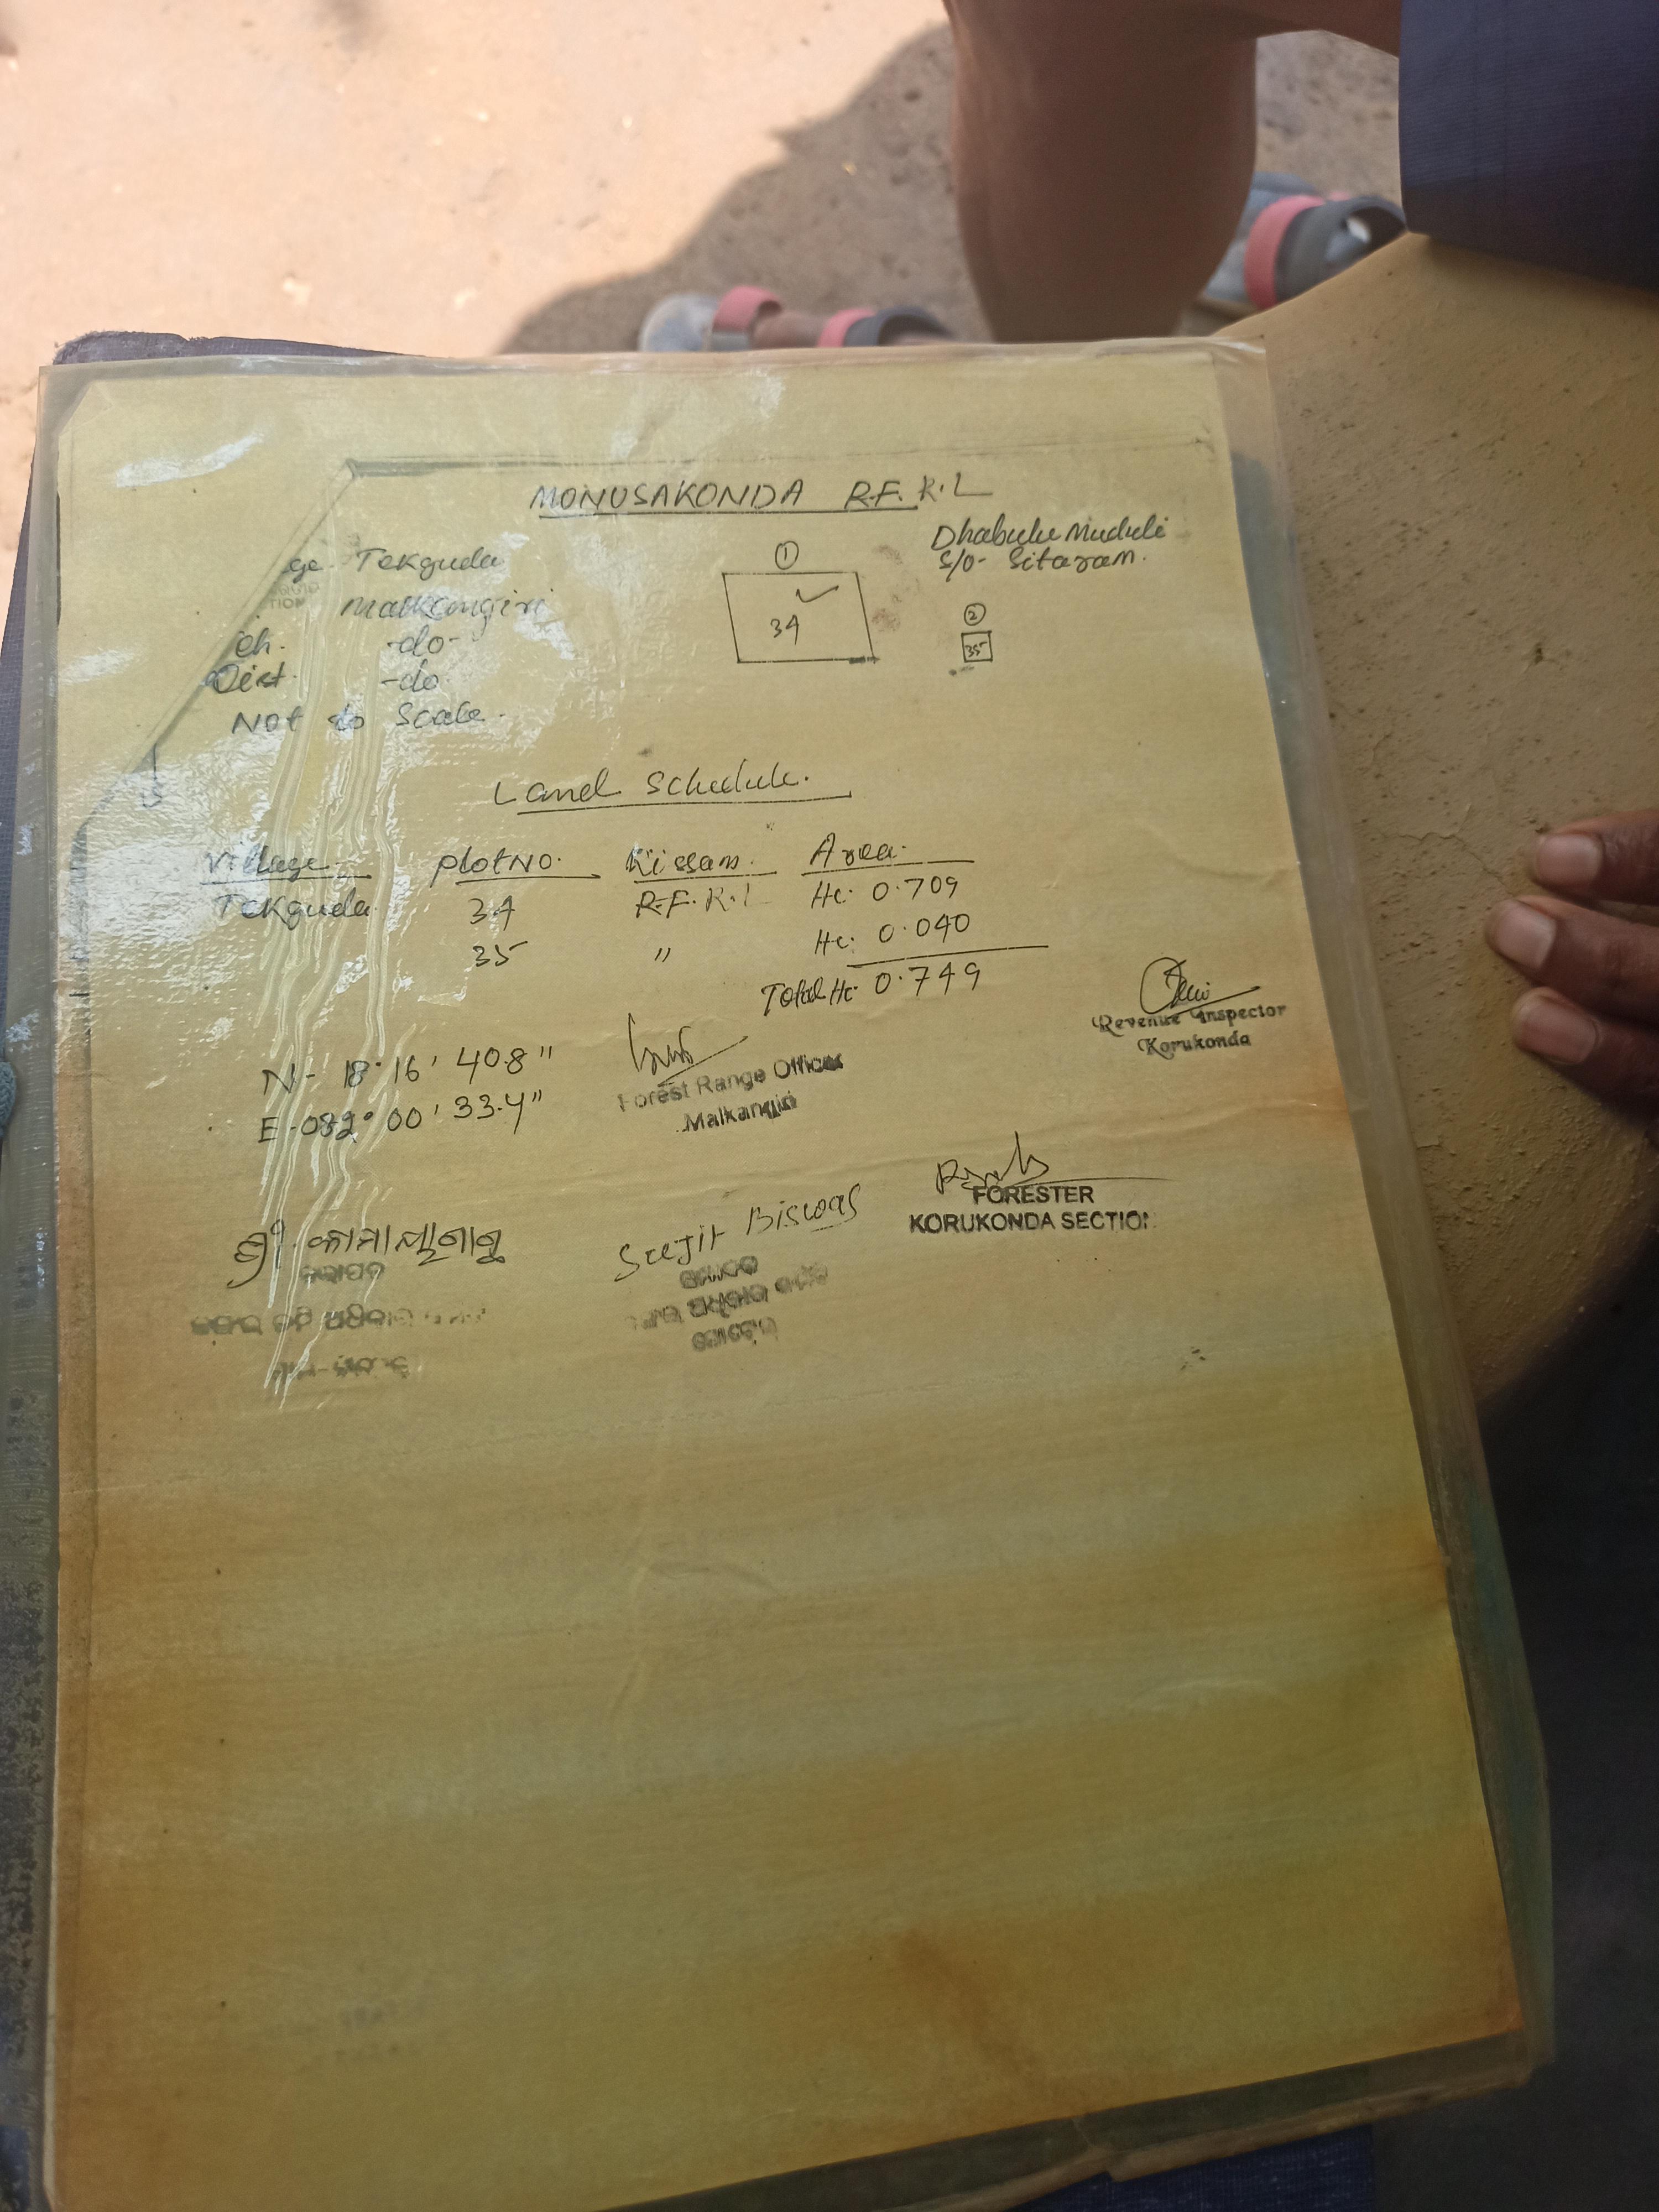 MONUSAKONDA R.F. K.L
Dhabulu Muduli
S/O- Sitaram.
ge. Tekguda
Malkangiri
eh. -do-
Dist. -do-
Not to Scale.
①
34
②
35
Land Schedule.
Village Plot No. Kissam. Area.
Tekguda 34 R.F. K.L Hc. 0.709
35 " Hc. 0.040
Total Hc 0.749
N- 18° 16' 40.8"
E-082° 00' 33.4"
Forest Range Officer
Malkangiri
Revenue Inspector
Korukonda
FORESTER
KORUKONDA SECTION
Surjit Biswas